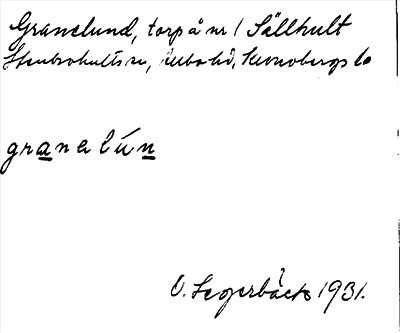 Granelund, torp å nr 1 Sällhult
Stenbrohults sn, Allbo hd, Kronobergs lä
granelún
O. Segerbäck 1931.